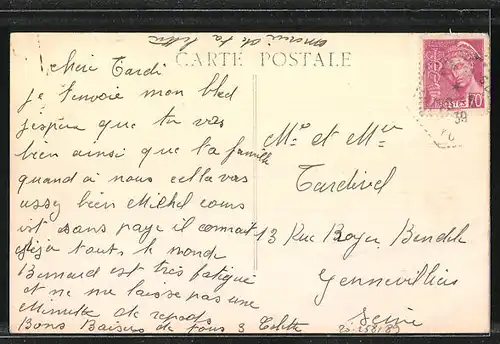 CARTE POSTALE
chère Tardi
je t'envoie mon bled
j'espère que tu vas
bien ainsi que ta famille
quand a nous cella vas
aussy bien Michel cours
ist sans page il connait
déja touts le monde
Bernard est très fatigué
et ne me laisse pas une
Minutte de repods
Bons Baisers de tous 3 Colette
de ta lettre
Mr et Mer
Tardivel
13 Rue Royer Bendelé
Gennevilliers
Seine
POSTES 70
39